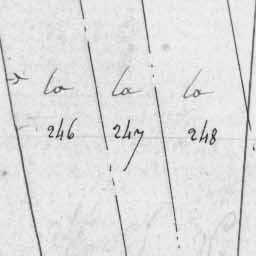 la la la
246 247 248